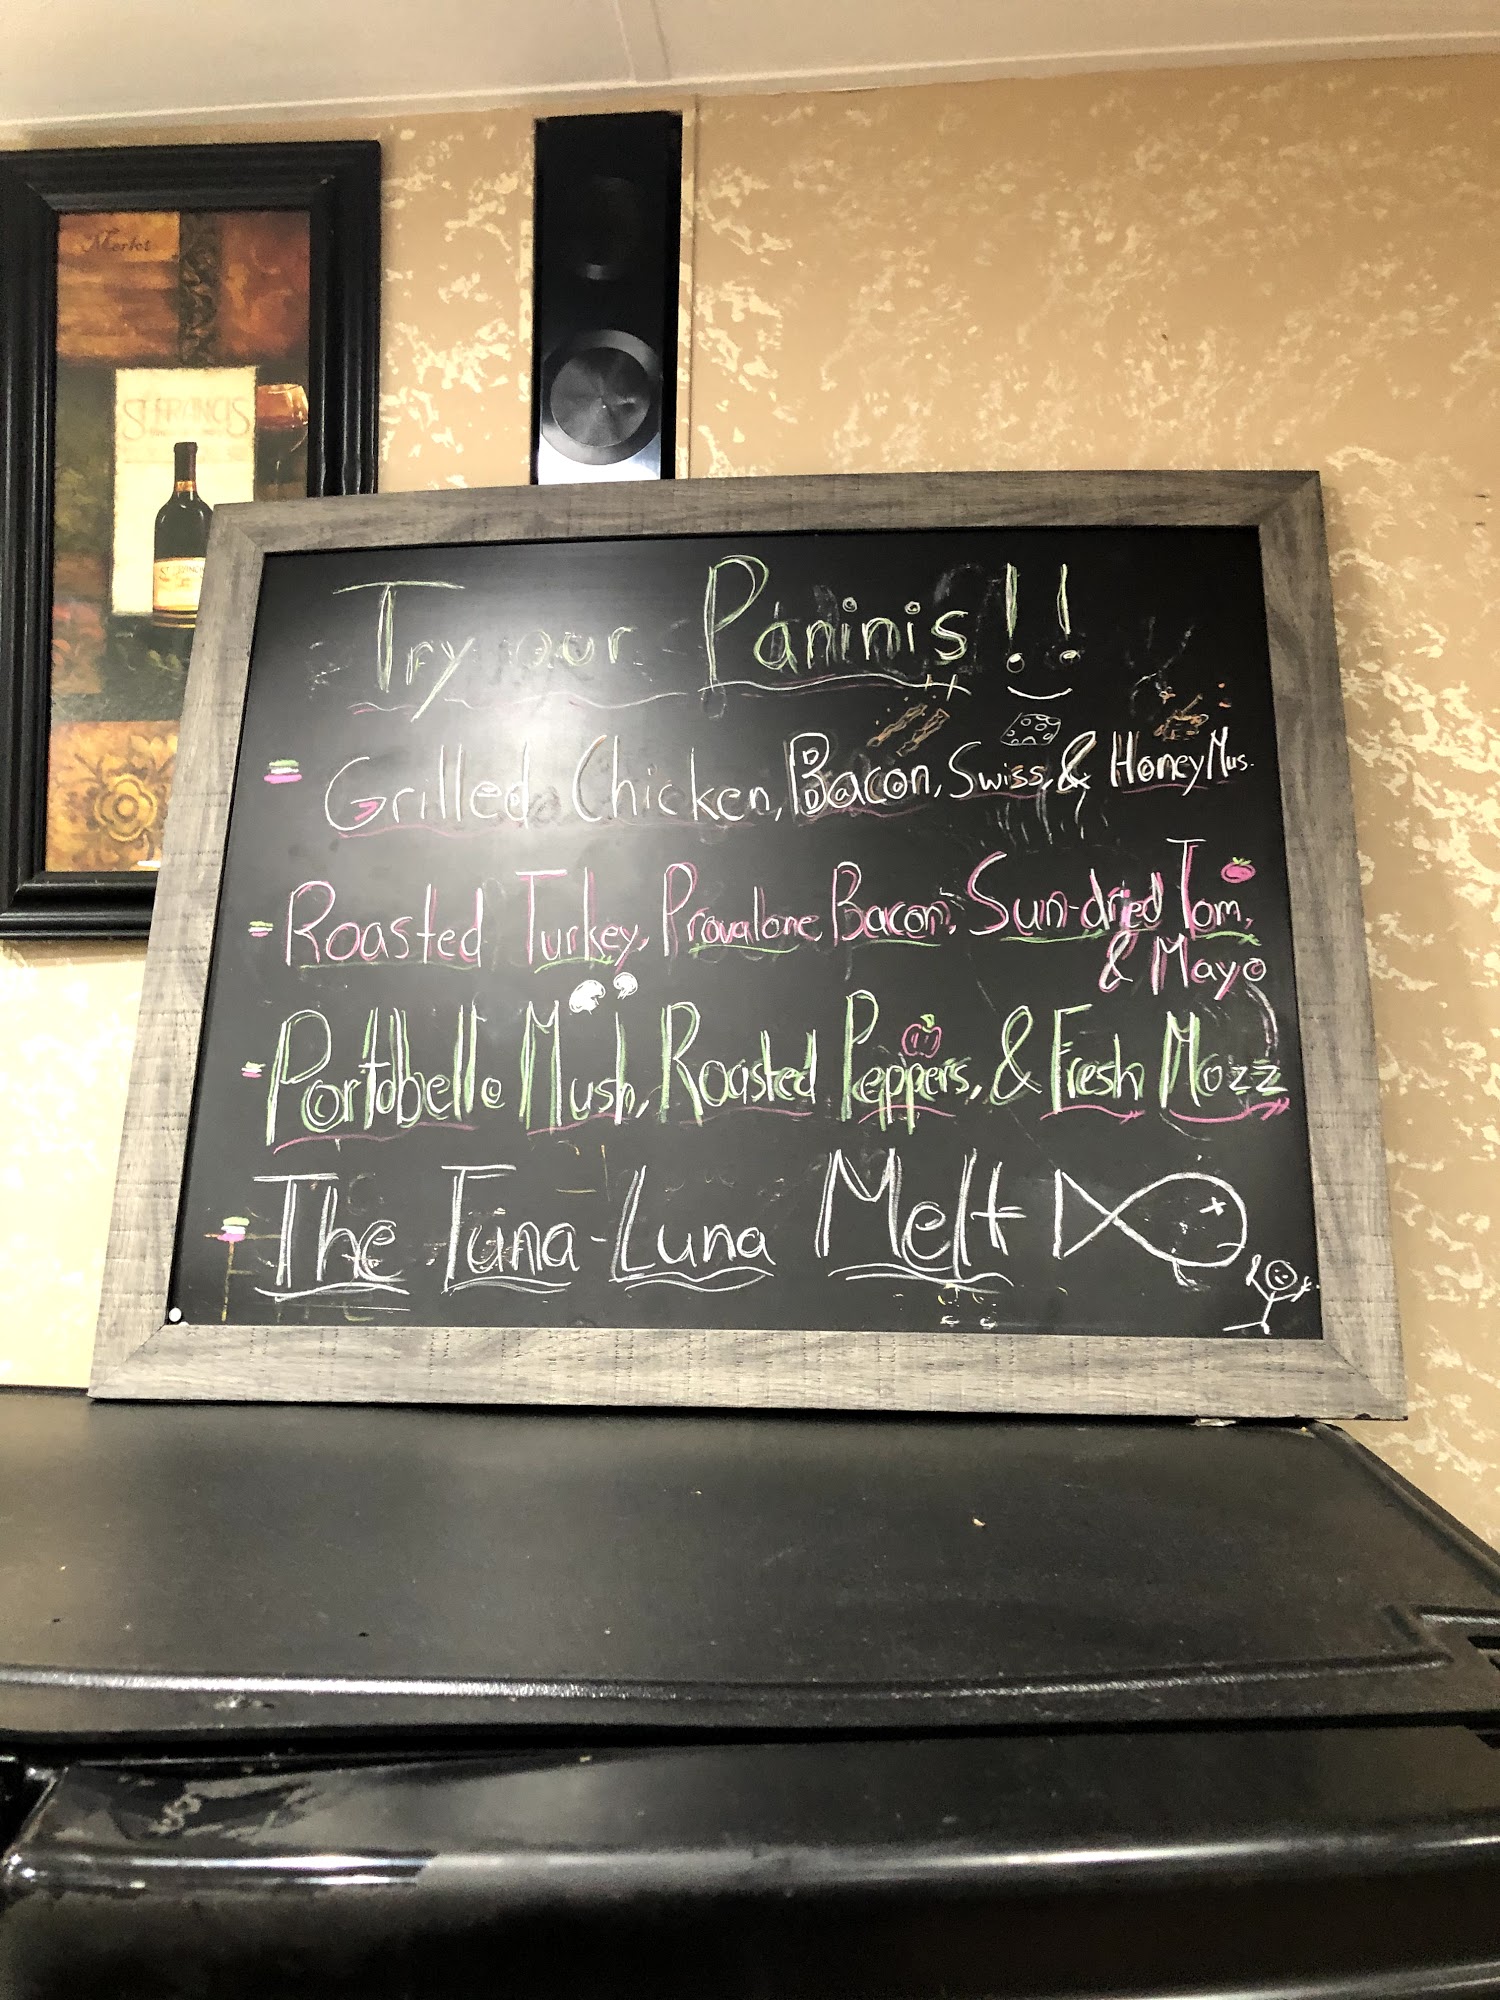 Merlot
ST. FRANCIS
ST. FRANCIS
Try our Paninis!!
Grilled Chicken, Bacon, Swiss, & Honey Mus.
Roasted Turkey, Provalone, Bacon, Sun-dried Tom,
& Mayo
Portobello Mush, Roasted Peppers, & Fresh Mozz
The Tuna-Luna Melt